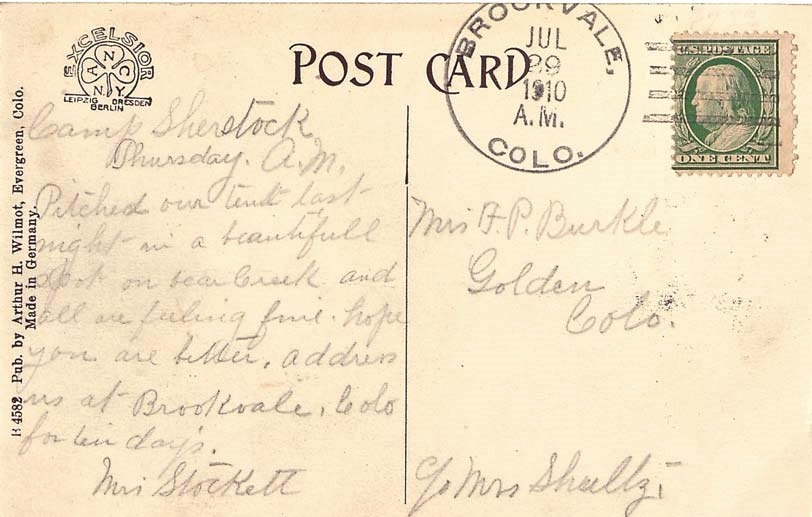 EXCELSIOR
ANC
N.Y.
LEIPZIG DRESDEN
BERLIN
POST CARD
BROOKVALE,
JUL
29
1910
A.M.
COLO.
U.S. POSTAGE
ONE CENT
B 4582 Pub. by Arthur H. Wilmot, Evergreen, Colo.
Made in Germany.
Camp Sherstock
Thursday. A.M.
Pitched our tent last
night in a beautifull
spot on bear Creek and
all are feeling fine. hope
you are better. address
us at Brookvale, Colo
for ten days.
Mrs Stockett
Mrs F. P. Burkle
Golden
Colo.
c/o Mrs Shultz,